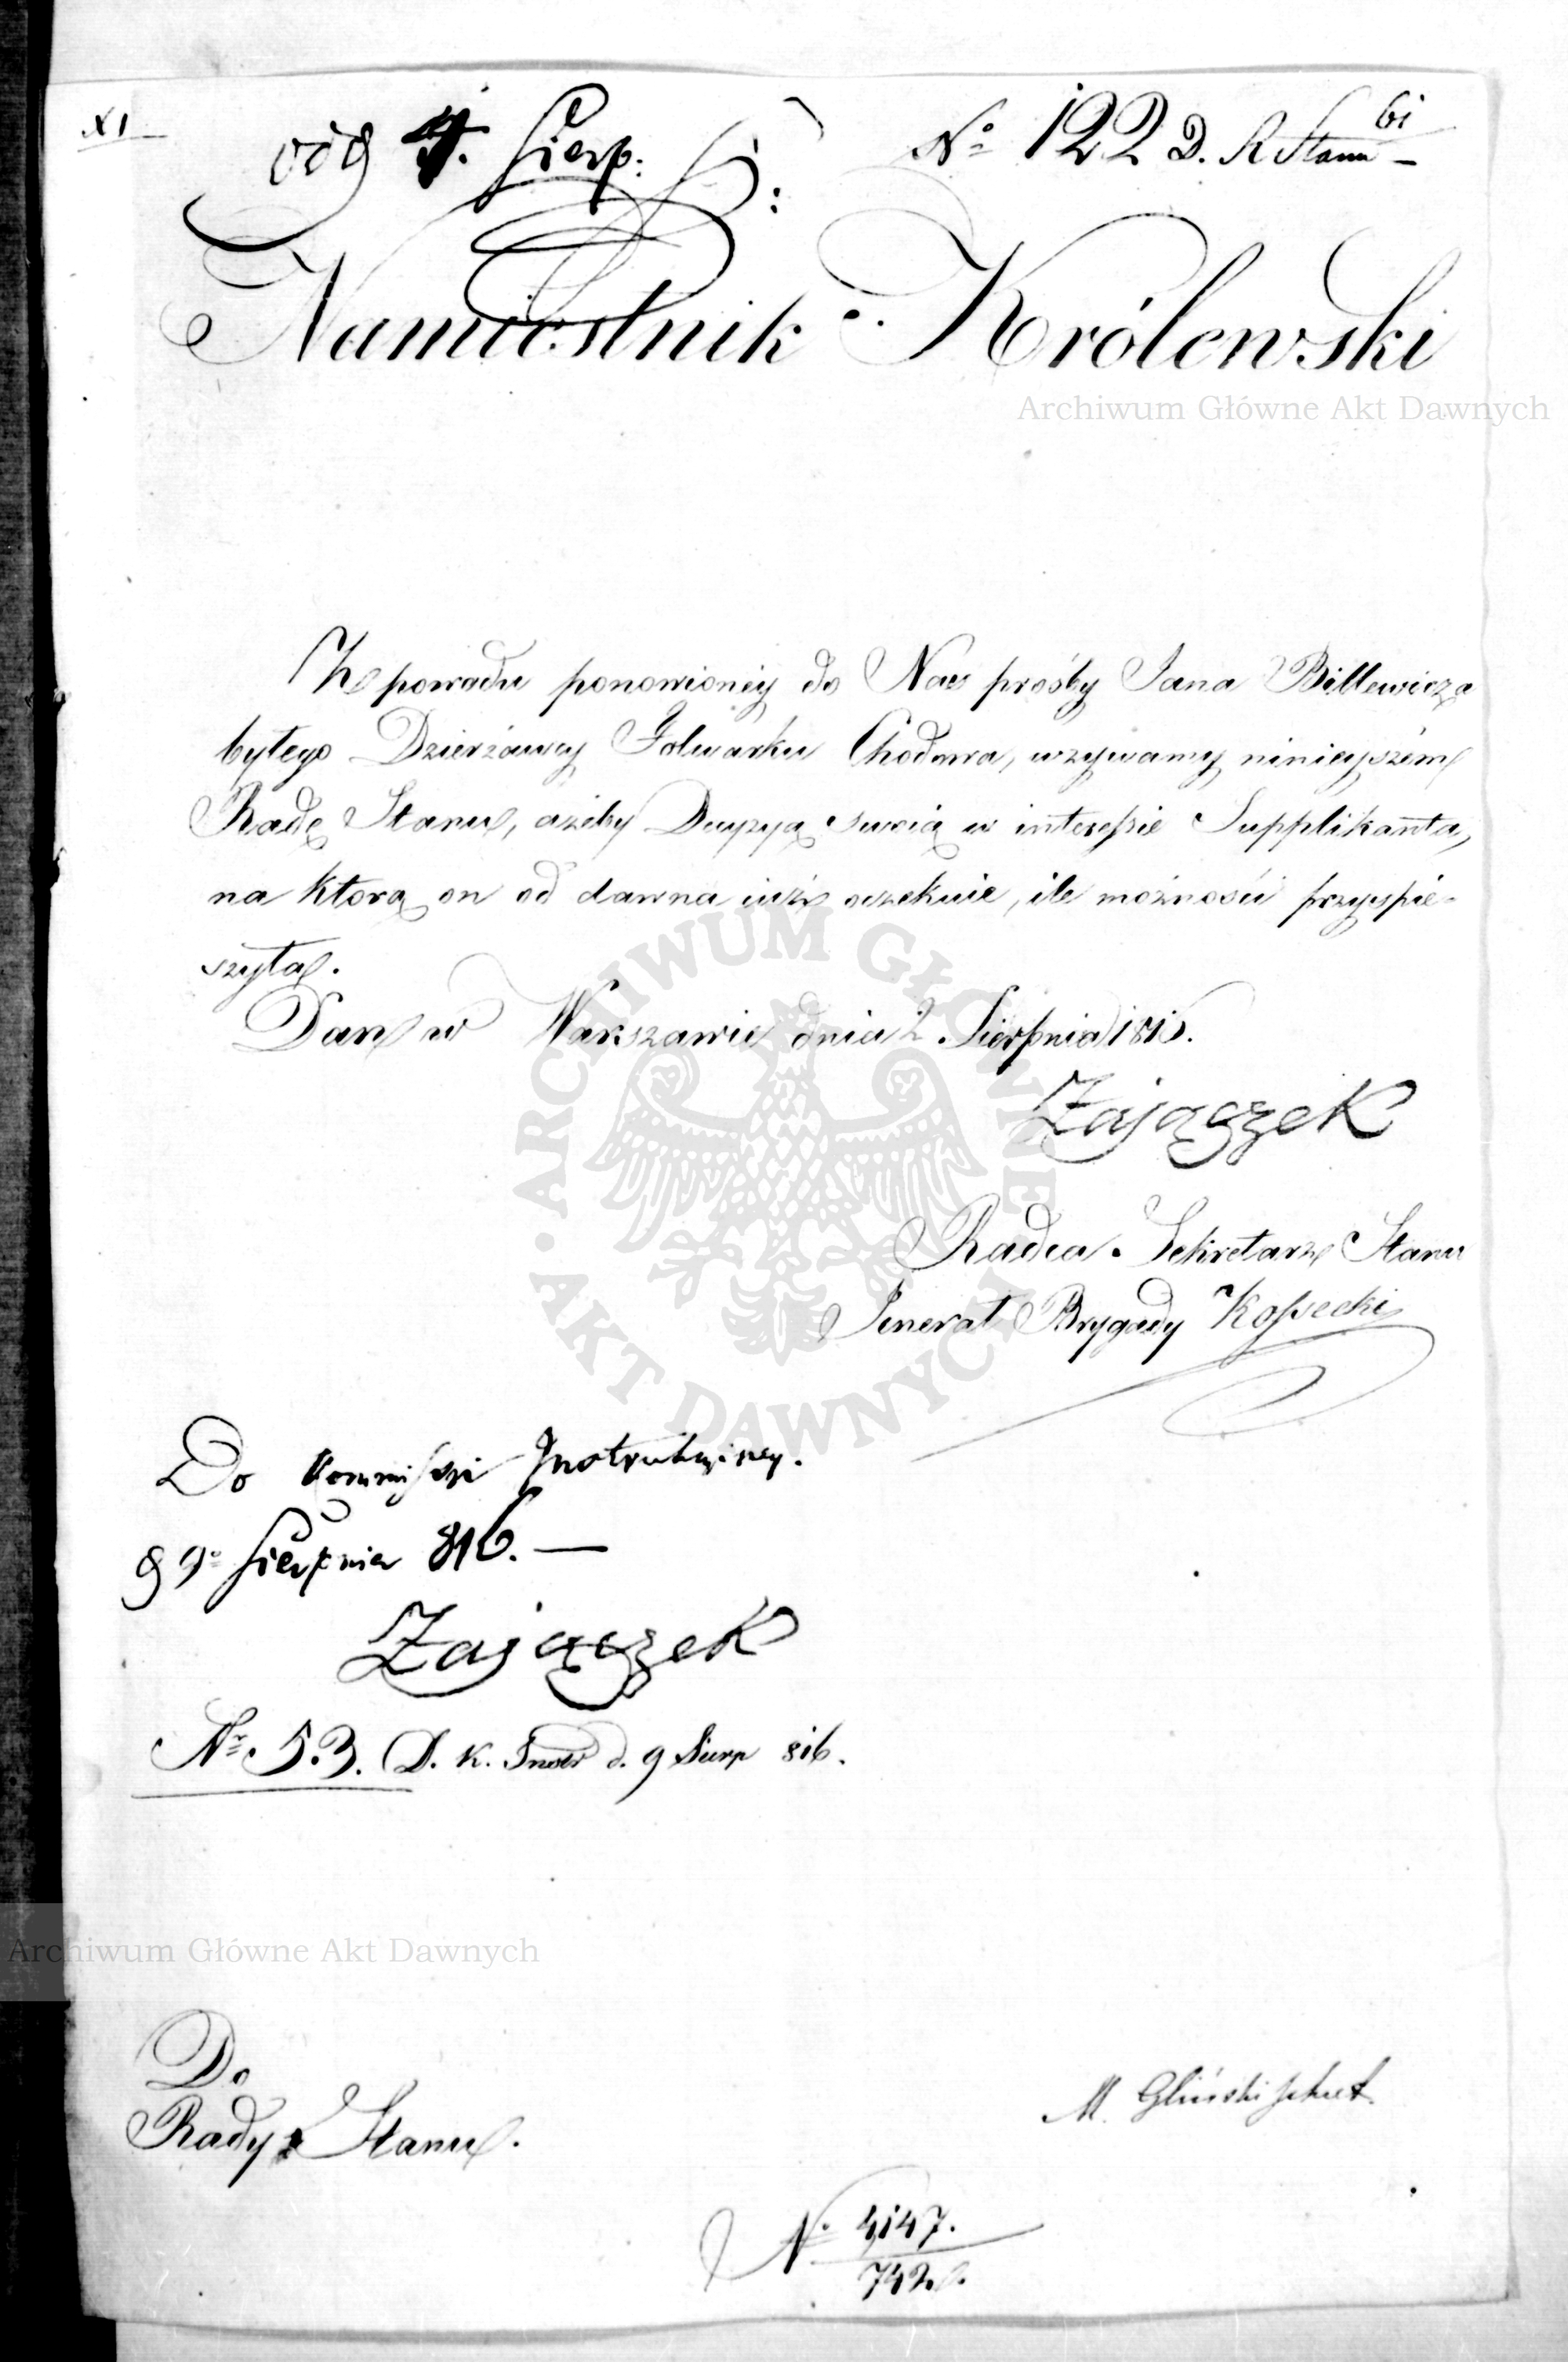 XI
odd 4. Sierp.
No 122 D. R Stanu
61
Namiestnik Królewski
Archiwum Główne Akt Dawnych
Z powodu ponowioney do Nas prośby Jana Billewicza
byłego Dzierżawcy Folwarku Chodowa, wzywamy ninieyszém
Radę Stanu, ażeby Decyzyą swoią w interessie Supplikanta,
na ktorą on od dawna iuż oczekuie, ile możności przyspie-
szyła.
Dan w Warszawie dnia 2 Sierpnia 1816.
Zajączek
Radca Sekretarz Stanu
Jenerał Brygady Kossecki
ARCHIWUM GŁÓWNE AKT DAWNYCH
Do Kommissyi Instrukcyiney.
d 9o Sierpnia 816. —
Zajączek
Nr 53. D. K. Instr d. 9 Sierp 816.
Archiwum Główne Akt Dawnych
Do
Rady Stanu.
M. Gliński sekret
No 4147.
742.